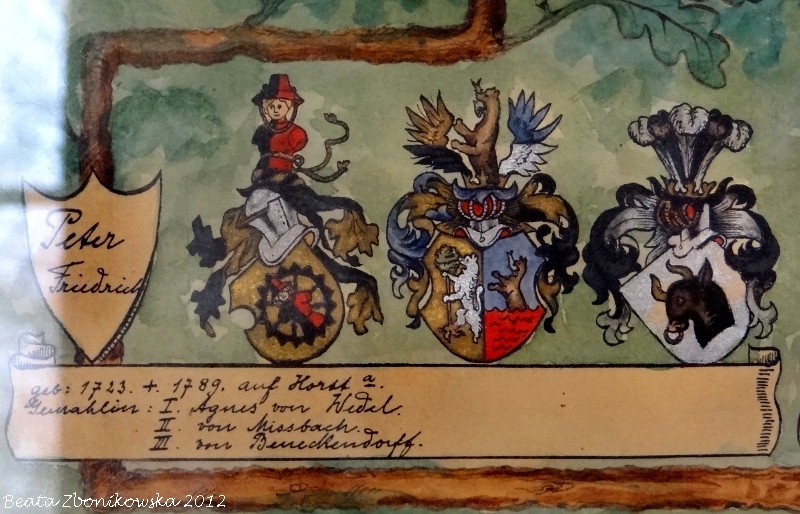 Peter
Friedrich
geb: 1723. + 1789. auf Horst a.
Gemahlin: I. Agnes von Wedel.
II. von Missbach.
III. von Beneckendorff.
Beata Zbonikowska 2012